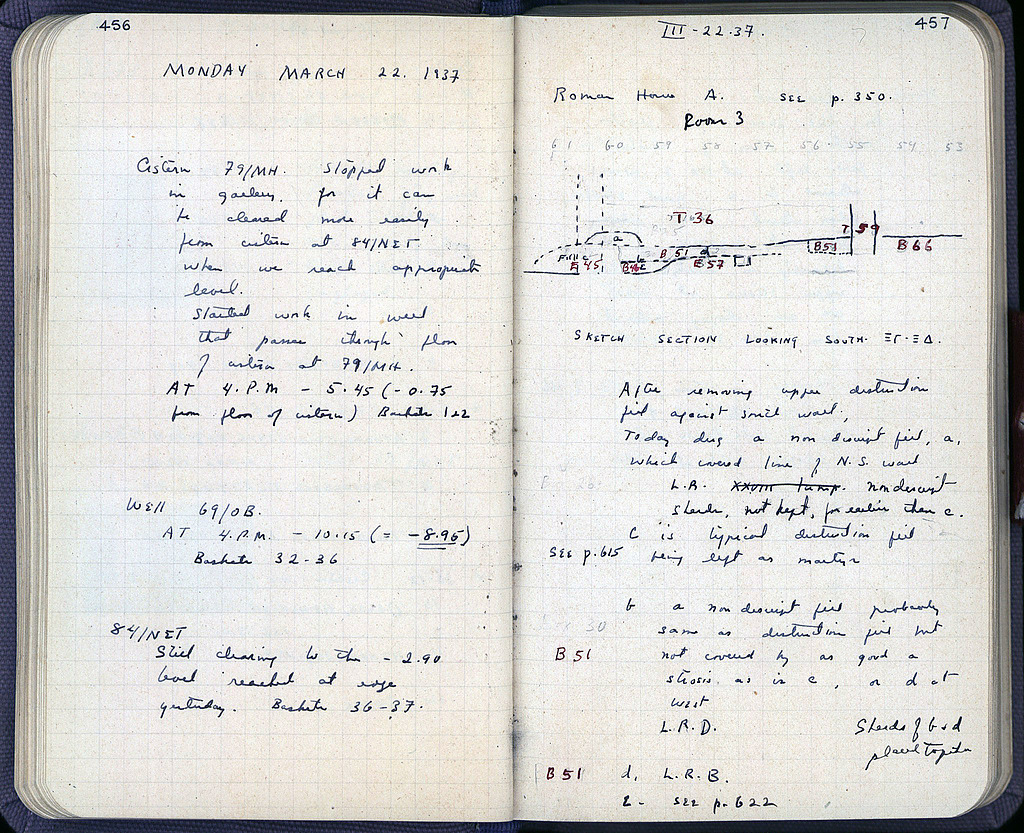 456
MONDAY MARCH 22. 1937
Cistern 79/MH. Stopped work
in gallery, for it can
be cleared more easily
from cistern at 84/NET
when we reach appropriate
level.
Started work in well
that passes through floor
of cistern at 79/MH.
AT 4.P.M - 5.45 (-0.75
from floor of cistern) Baskets 1-22
Well 69/OB.
AT 4.P.M. - 10.15 (= -8.95)
Baskets 32-36
84/NET
Still clearing to the -2.90
level reached at edge
yesterday. Baskets 36-37.
457
III-22.37.
Roman House A. SEE p. 350.
Room 3
61 60 59 58 57 56 55 54 53
T 36
a
T 59
B 66
B 51
B 51 d
E 57
Fill c
E 45
SKETCH SECTION LOOKING SOUTH. ΞΓ-ΞΔ.
After removing upper destruction
fill against south wall,
Today dug a non descript fill, a,
which covered line of N.S. wall
L.R. XXVIII lamp. nondescript
sherds, not kept, far earlier than c.
C is typical destruction fill
SEE p.615 being left as martyr
b a non descript fill probably
same as destruction fill but
B 51 not covered by as good a
strosis as in c, or d at
west
L.R.D.
Sherds of b+d
placed together
B 51 d, L.R.B.
e - SEE p. 622